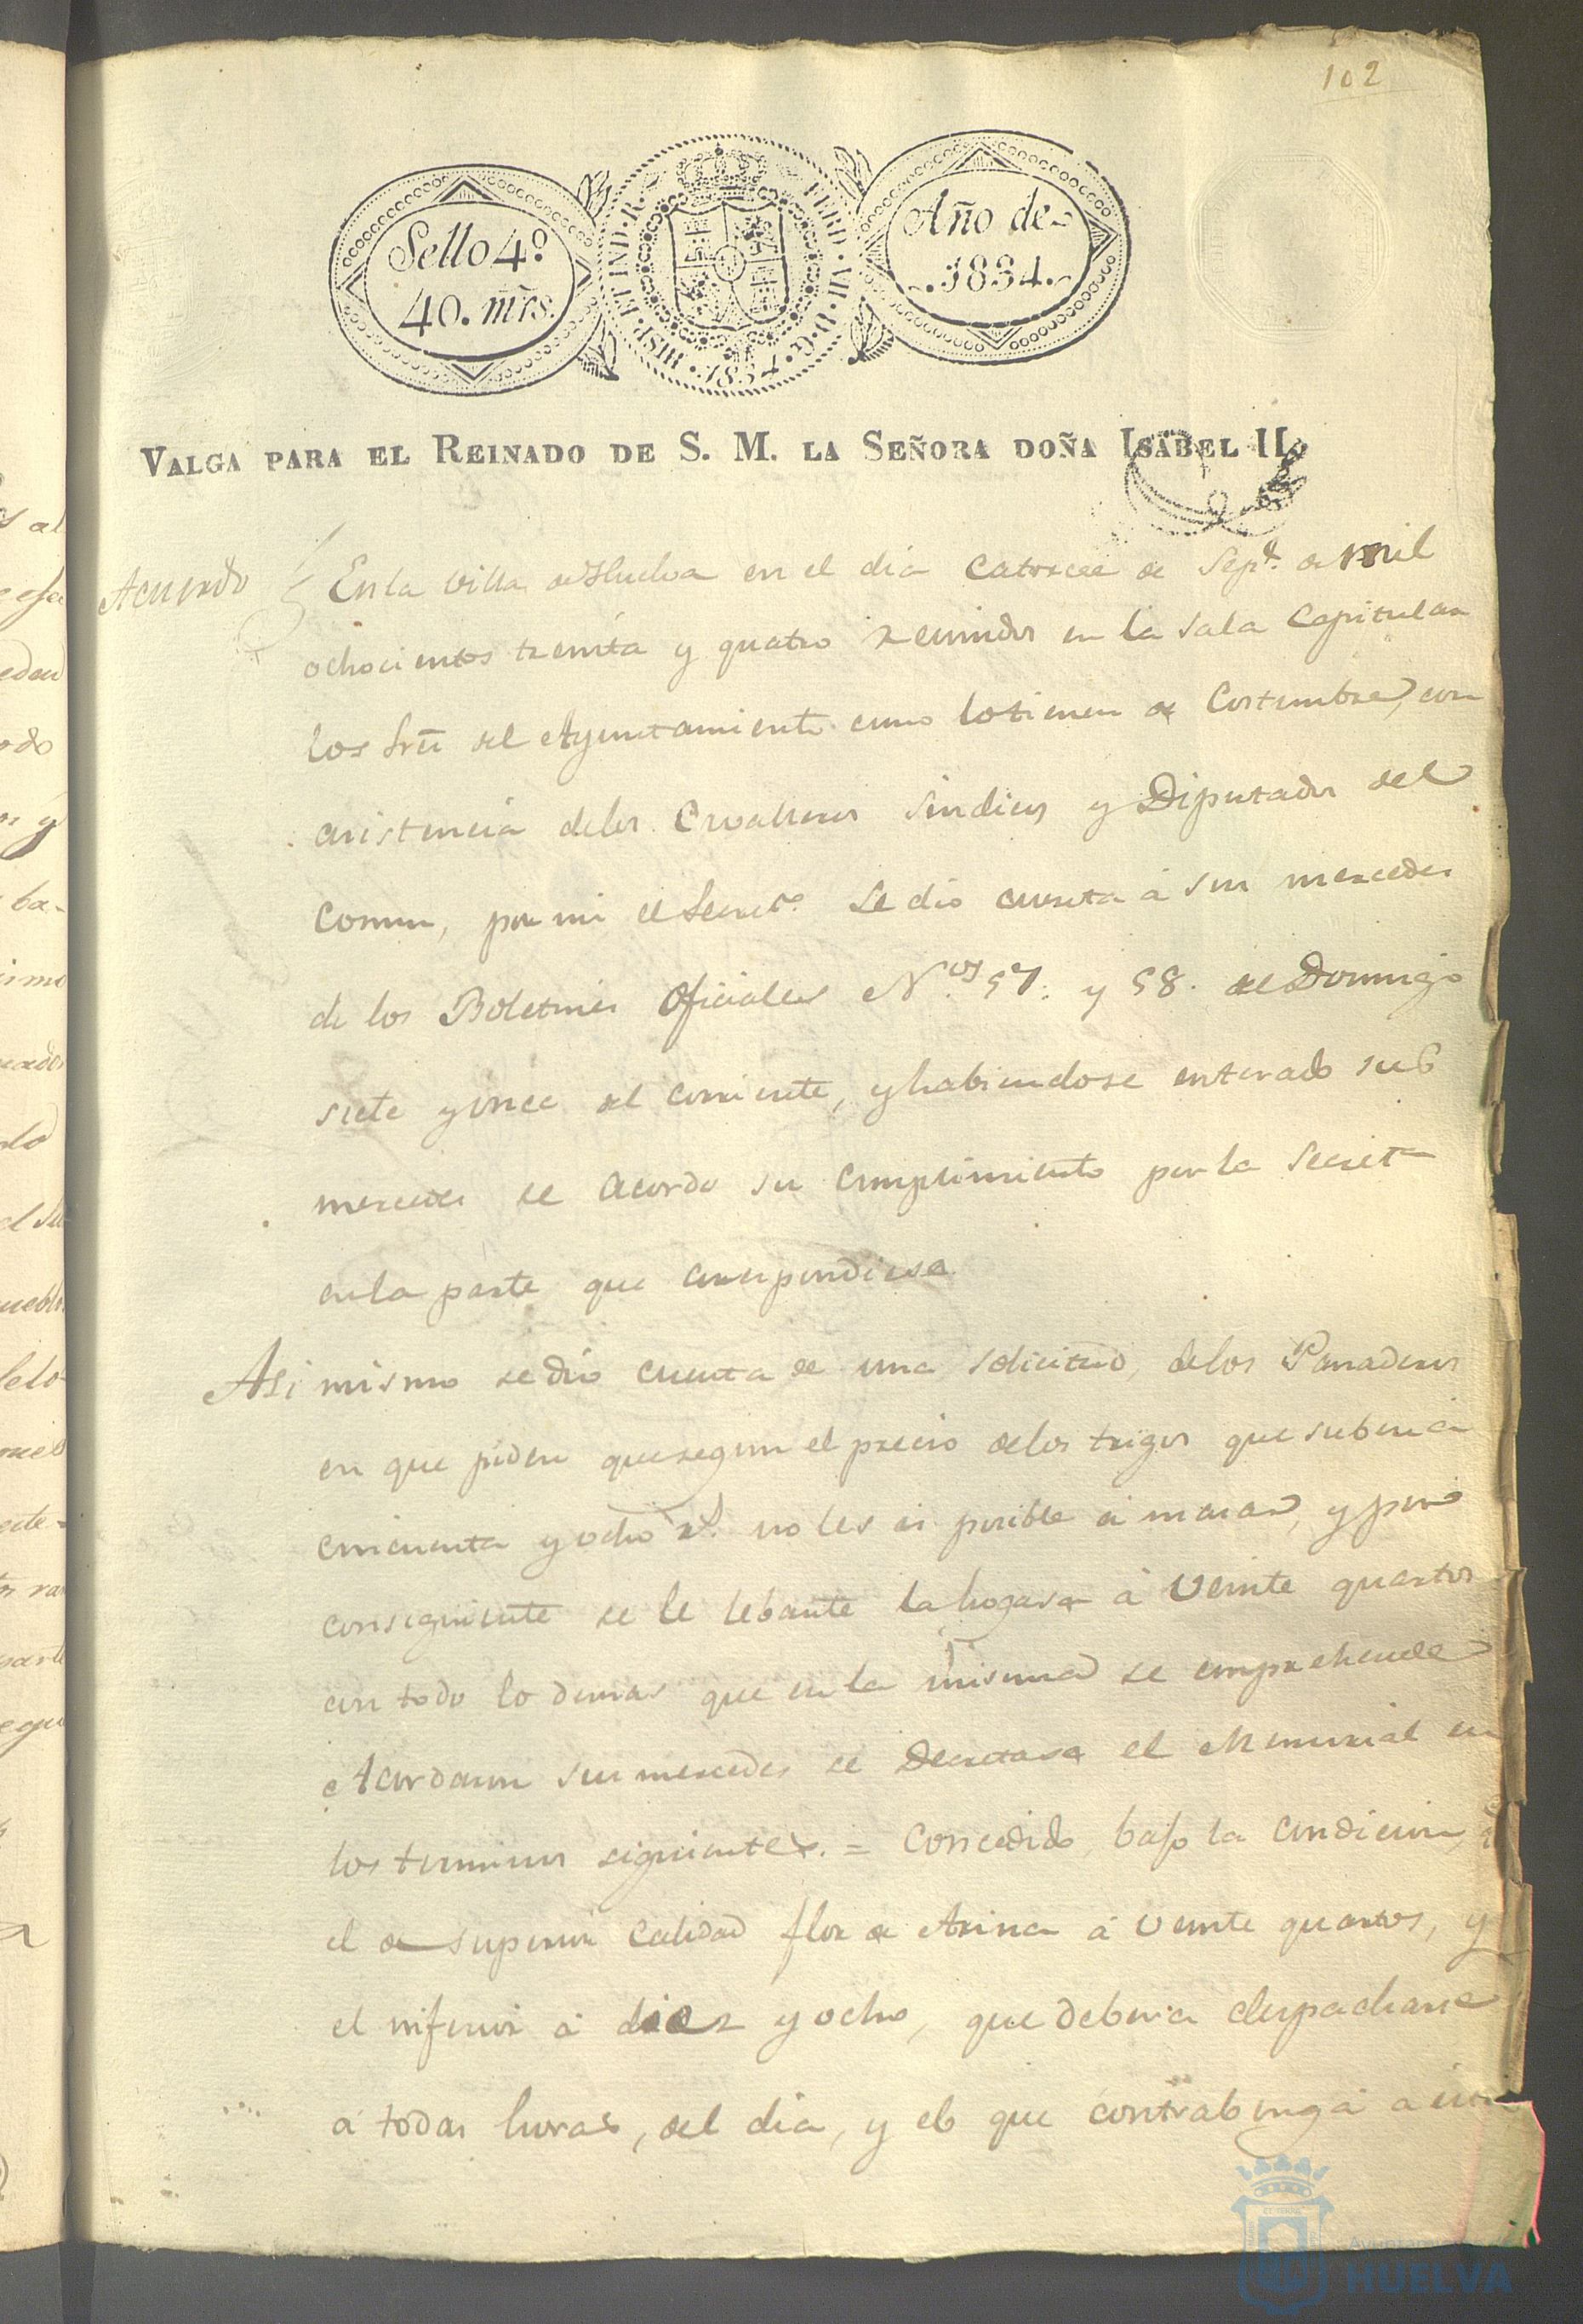 102
Sello 4º
40. mrs.
HISP. ET IND. R. FERD. VII. D. G. 1834.
Año de
1834.
VALGA PARA EL REINADO DE S. M. LA SEÑORA DOÑA ISABEL II.
Acuerdo
En la Villa de Huelva en el dia Catorce de Sepe. de mil
ochocientos treinta y quatro reunidos en la Sala Capitular
los Sres del Ayuntamiento como lo tienen de Costumbre, con
asistencia delos Cavalleros Sindicos y Diputados del
Comun, por mi el Secreto. se dio cuenta á sus mercedes
de los Boletines Oficiales Nos. 57. y 58. del Domingo
siete y once del corriente, y habiendose enterado sus
mercedes se acordo su cumplimiento por la Secreta
en la parte que correspondiese.
Asi mismo se dio cuenta de una solicitud, delos Panaderos
en que piden que segun el precio delos trigos que suben á
cincuenta y ocho rs. no les es posible amasar, y por
consiguiente se le lebante la hogasa á veinte quartos
con todo lo demas que en la misma se comprehende
Acordaron sus mercedes se decretase el Memorial en
los terminos siguientes. = Concedido bajo la condicion,
el de superior Calidad flor de Arina á veinte quartos, y
el inferior á diez y ocho, que deberia despacharse
á todas horas, del dia, y el que contrabenga a
HUELVA